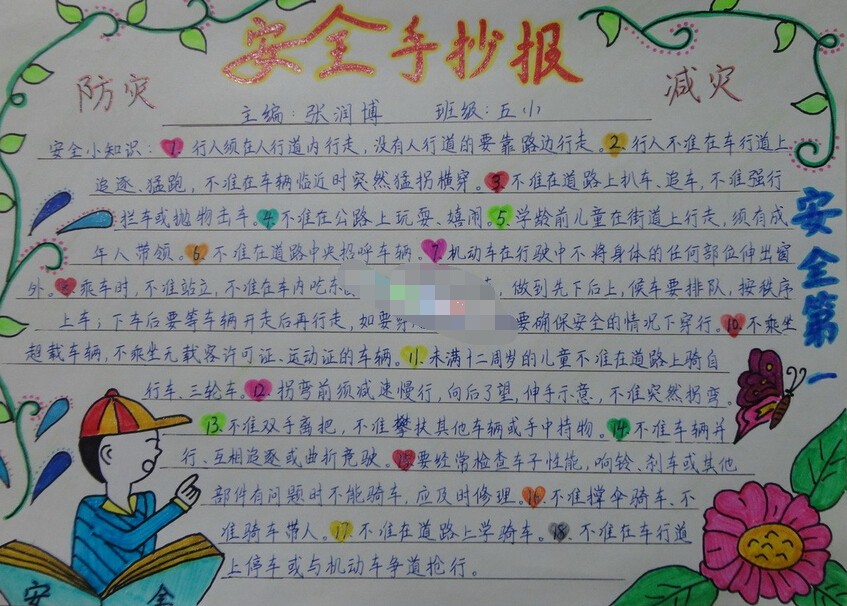 安全手抄报
防灾
减灾
主编:张润博 班级:五小
安全小知识: 1. 行人须在人行道内行走,没有人行道的要靠路边行走。2. 行人不准在车行道上
追逐、猛跑,不准在车辆临近时突然猛拐横穿。3. 不准在道路上扒车、追车,不准强行
拦车或抛物击车。4. 不准在公路上玩耍、嬉闹。5. 学龄前儿童在街道上行走,须有成
年人带领。6. 不准在道路中央招呼车辆。7. 机动车在行驶中不将身体的任何部位伸出窗
外。8. 乘车时,不准站立,不准在车内吃东 ,做到先下后上,候车要排队,按秩序
上车;下车后要等车辆开走后再行走,如要穿 要确保安全的情况下穿行。10. 不乘坐
超载车辆,不乘坐无载客许可证、运动证的车辆。11. 未满十二周岁的儿童不准在道路上骑自
行车、三轮车。12. 拐弯前须减速慢行,向后了望,伸手示意,不准突然拐弯。
13. 不准双手离把,不准攀扶其他车辆或手中持物。14. 不准车辆并
行、互相追逐或曲折竞驶。15. 要经常检查车子性能,响铃、刹车或其他
部件有问题时不能骑车,应及时修理。16. 不准撑伞骑车、不
准骑车带人。17. 不准在道路上学骑车。18. 不准在车行道
上停车或与机动车争道抢行。
安全第一
安全